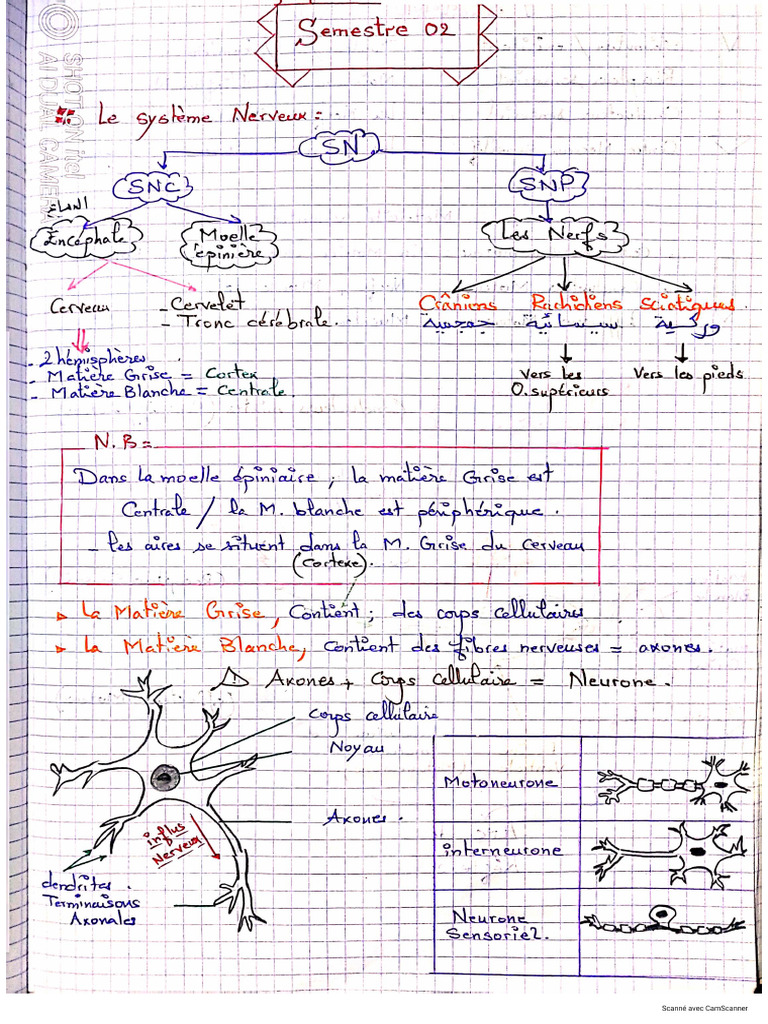 Semestre 02
Le système Nerveux :
SN
SNC
SNP
الدماغ
Encéphale
Moelle
épinière
Les Nerfs
Cerveau
- Cervelet
- Tronc cérébrale.
Crâniens
Rachidiens
Sciatiques
جمجمية
سيسائية
وركية
Vers les
O. supérieurs
Vers les pieds
- 2 hémisphères.
- Matière Grise = Cortex
- Matière Blanche = Centrale.
N.B =
Dans la moelle épiniaire ; la matière Grise est
Centrale / la M. blanche est périphérique.
- les aires se situent dans la M. Grise du cerveau
(Cortexe).
▸ La Matière Grise, Contient ; des corps cellulaires
▸ La Matière Blanche, Contient des fibres nerveuses = axones.
⚠ Axones + Corps cellulaire = Neurone.
Corps cellulaire
Noyau
Axones.
influs
Nerveux
dendrites.
Terminaisons
Axonales
Motoneurone
interneurone
Neurone
Sensoriel.
SHOT ON itel
AI DUAL CAMERA
Scanné avec CamScanner